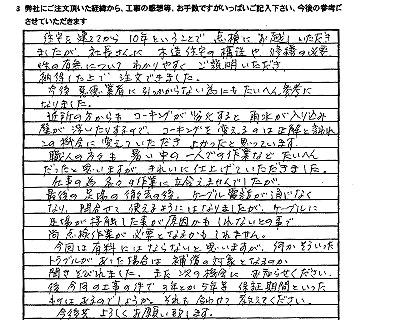 3 弊社にご注文頂いた経緯から、工事の感想等、お手数ですがいっぱいご記入下さい、今後の参考に
させていただきます
住宅を建ててから10年ということで点検にお越しいただき
ましたが、社長さんに木造住宅の構造や修繕の必要
性の有無についてわかりやすくご説明いただき
納得した上で注文できました。
今後悪徳業者に引っかからない為にもたいへん参考に
なりました。
近所の方からもコーキングが劣化すると雨水が入り込み
壁が浮いたりするので、コーキングを変えるのは正解と
この機会に変えていただきよかったと思っています。
職人の方々も暑い中の一人での作業などたいへん
だったと思いますがきれいに仕上げていただきました。
仕事の為、多々の作業に立会えませんでしたが、
最後の足場の撤去の後、ケーブル電話が通じなく
なり、問合せ、使えるようにはなりましたが、ケーブルに
足場が接触した事が原因かもしれないとの事で
尚点検作業が必要となるかもしれません。
今回は有料にはならないと思いますが、何かそういった
トラブルがあった場合は補償の対象となるのか
聞きそびれました。また次の機会にお知らせください。
後、今回の工事の件で3年とか5年保証期間といった
ものはあるのでしょうか。それも合わせて教えてください。
今後共よろしくお願い致します。